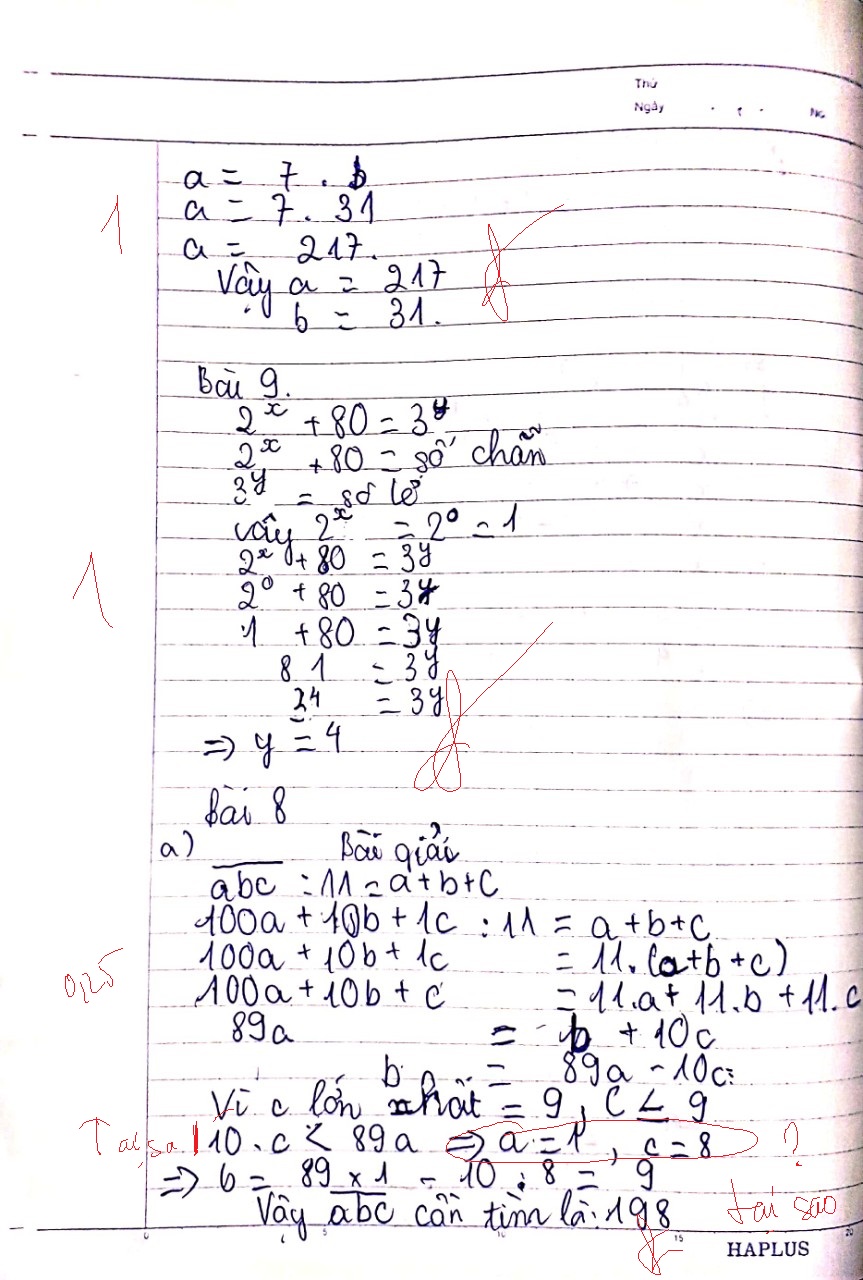 Thứ
Ngày
No
a = 7 . b
1
a = 7. 31
a = 217.
Vậy a = 217
b = 31.
Bài 9.
2^x + 80 = 3^y
2^x + 80 = số chẵn
3^y = số lẻ
Vậy 2^x = 2^0 = 1
2^x + 80 = 3^y
1
2^0 + 80 = 3^y
1 + 80 = 3^y
81 = 3^y
3^4 = 3^y
=> y = 4
Bài 8
a) Bài giải
abc : 11 = a+b+c
100a + 10b + 1c : 11 = a+b+c
100a + 10b + 1c = 11.(a+b+c)
0,25
100a + 10b + c = 11.a + 11.b + 11.c
89a = b + 10c
b = 89a - 10c
Vì c lớn nhất = 9, c ≤ 9
Tại sao 10.c < 89a => a = 1, c = 8 ?
=> b = 89 x 1 - 10 . 8 = 9
Vậy abc cần tìm là: 198 tại sao
0 5 10 15 20
HAPLUS